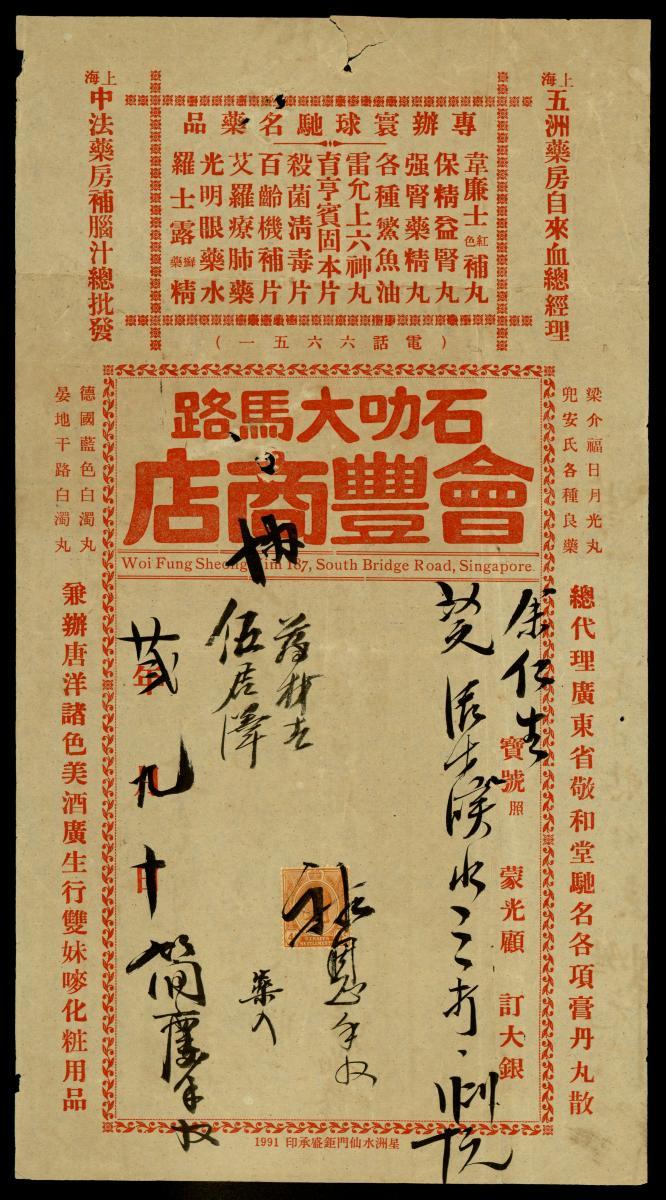 上海
五洲藥房自來血總經理
專辦寰球馳名藥品
韋廉士紅色補丸
保精益腎丸
强腎藥精丸
各種鰵魚油
雷允上六神丸
育亨賓固本片
殺菌淸毒片
百齡機補片
艾羅療肺藥
光明眼藥水
羅士露癬藥精
(電話六六五一)
上海
中法藥房補腦汁總批發
梁介福日月光丸
兜安氏各種良藥
石叻大馬路
會豐商店
Woi Fung Sheong Tim 187, South Bridge Road, Singapore.
德國藍色白濁丸
晏地干路白濁丸
總代理廣東省敬和堂馳名各項膏丹丸散
余仁生
寶號照
蒙光顧
訂大銀
伍
年九月十日
藥入
STRAITS SETTLEMENTS
兼辦唐洋諸色美酒廣生行雙妹嘜化粧用品
星洲水仙門鉅盛承印 1991